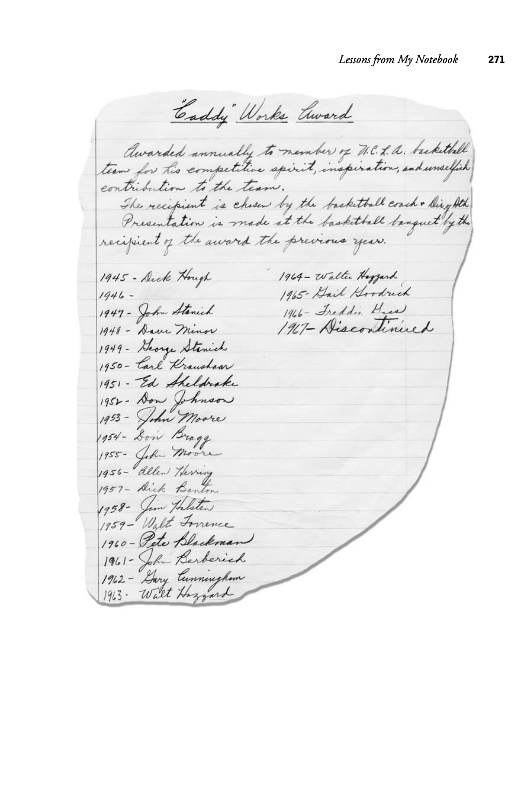 Lessons from My Notebook 271
"Caddy" Works Award
Awarded annually to member of U.C.L.A. basketball
team for his competitive spirit, inspiration, and unselfish
contribution to the team.
The recipient is chosen by the basketball coach + Dir. of Ath.
Presentation is made at the basketball banquet by the
recipient of the award the previous year.
1945 - Dick Hough
1946 -
1947 - John Stanich
1948 - Dave Minor
1949 - George Stanich
1950 - Carl Kraushaar
1951 - Ed Sheldrake
1952 - Don Johnson
1953 - John Moore
1954 - Don Bragg
1955 - John Moore
1956 - Allen Herring
1957 - Dick Banton
1958 - Jim Halsten
1959 - Walt Torrence
1960 - Pete Blackman
1961 - John Berberich
1962 - Gary Cunningham
1963 - Walt Hazzard
1964 - Walter Hazzard
1965 - Gail Goodrich
1966 - Freddie Goss
1967 - Discontinued